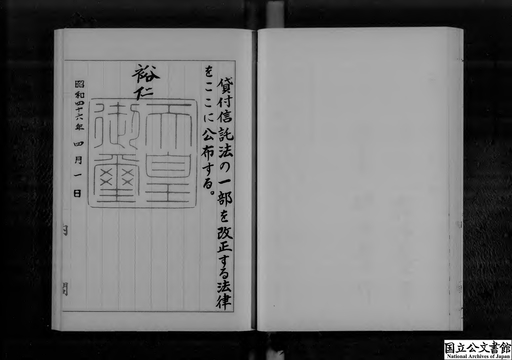 貸付信託法の一部を改正する法律
をここに公布する。
裕仁
天皇
御璽
昭和四十六年四月一日
国立公文書館
National Archives of Japan